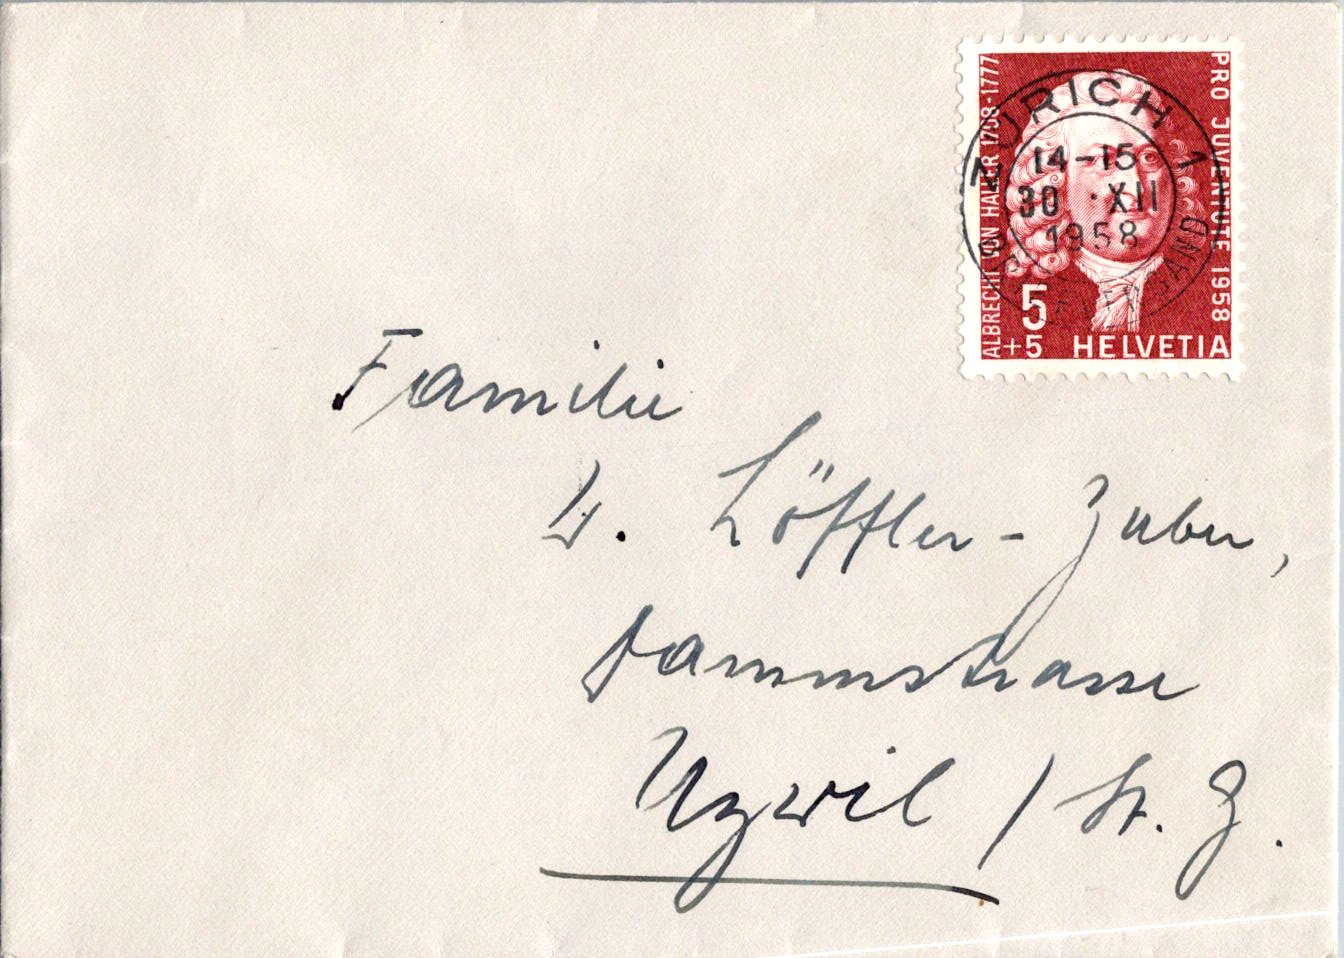 ALBRECHT VON HALLER 1708-1777
PRO JUVENTUTE 1958
ZÜRICH 1
14-15
30.XII
1958
BRIEFVERSAND
5
+5 HELVETIA
Familie
W. Löffler - Zuber,
Dammstrasse
Uzwil / St. G.